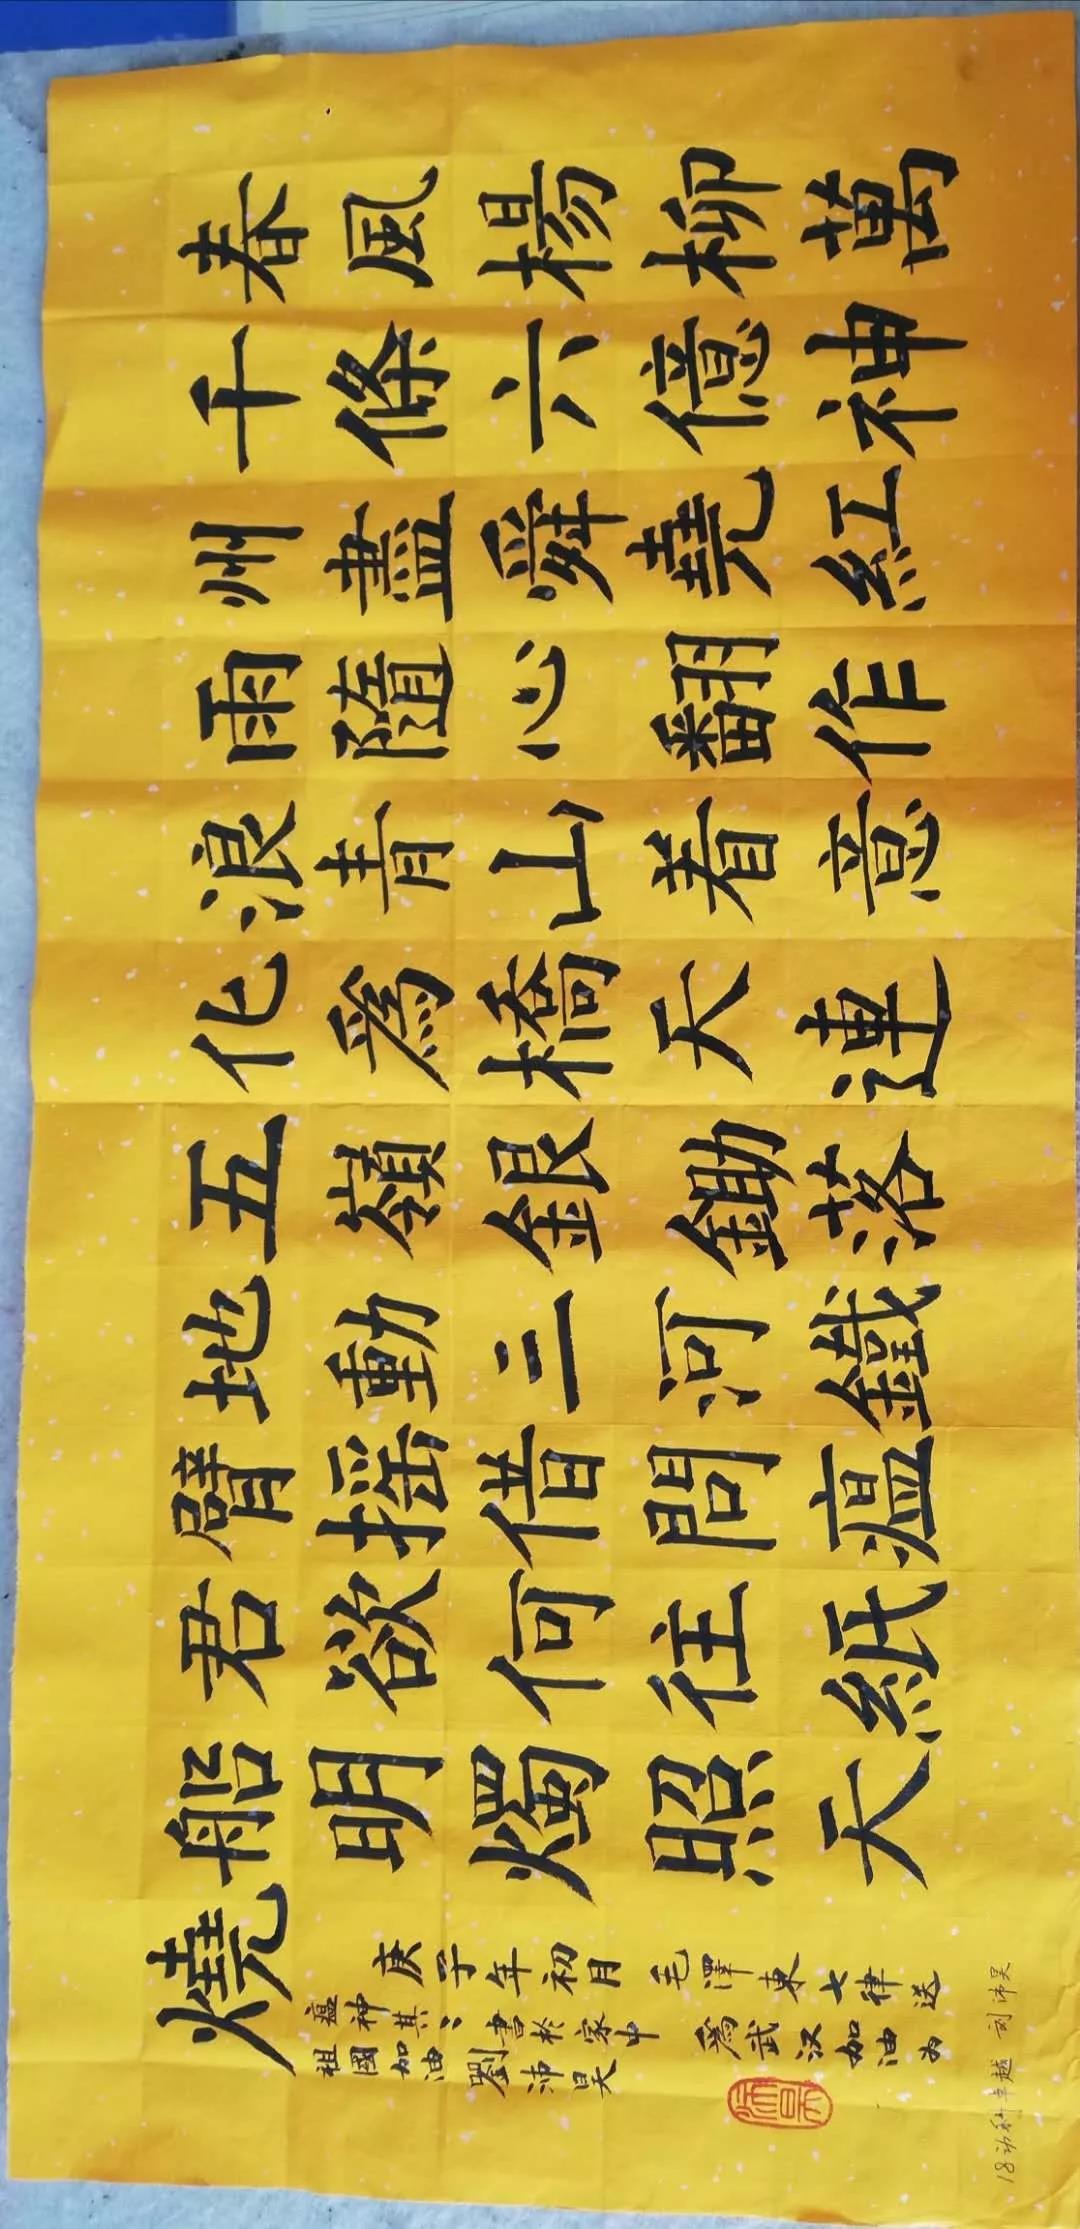 春風楊柳萬
千條六億神
州盡舜堯紅
雨隨心翻作
浪青山着意
化為橋天連
五嶺銀鋤落
地動二河鐵
臂搖借問瘟
君欲何往紙
船明燭照天
燒
庚子年初月 毛澤東七律送
瘟神其二書於家中 為武汉加油为
祖國加油 劉沛昊
沛昊
18动科卓越 刘沛昊